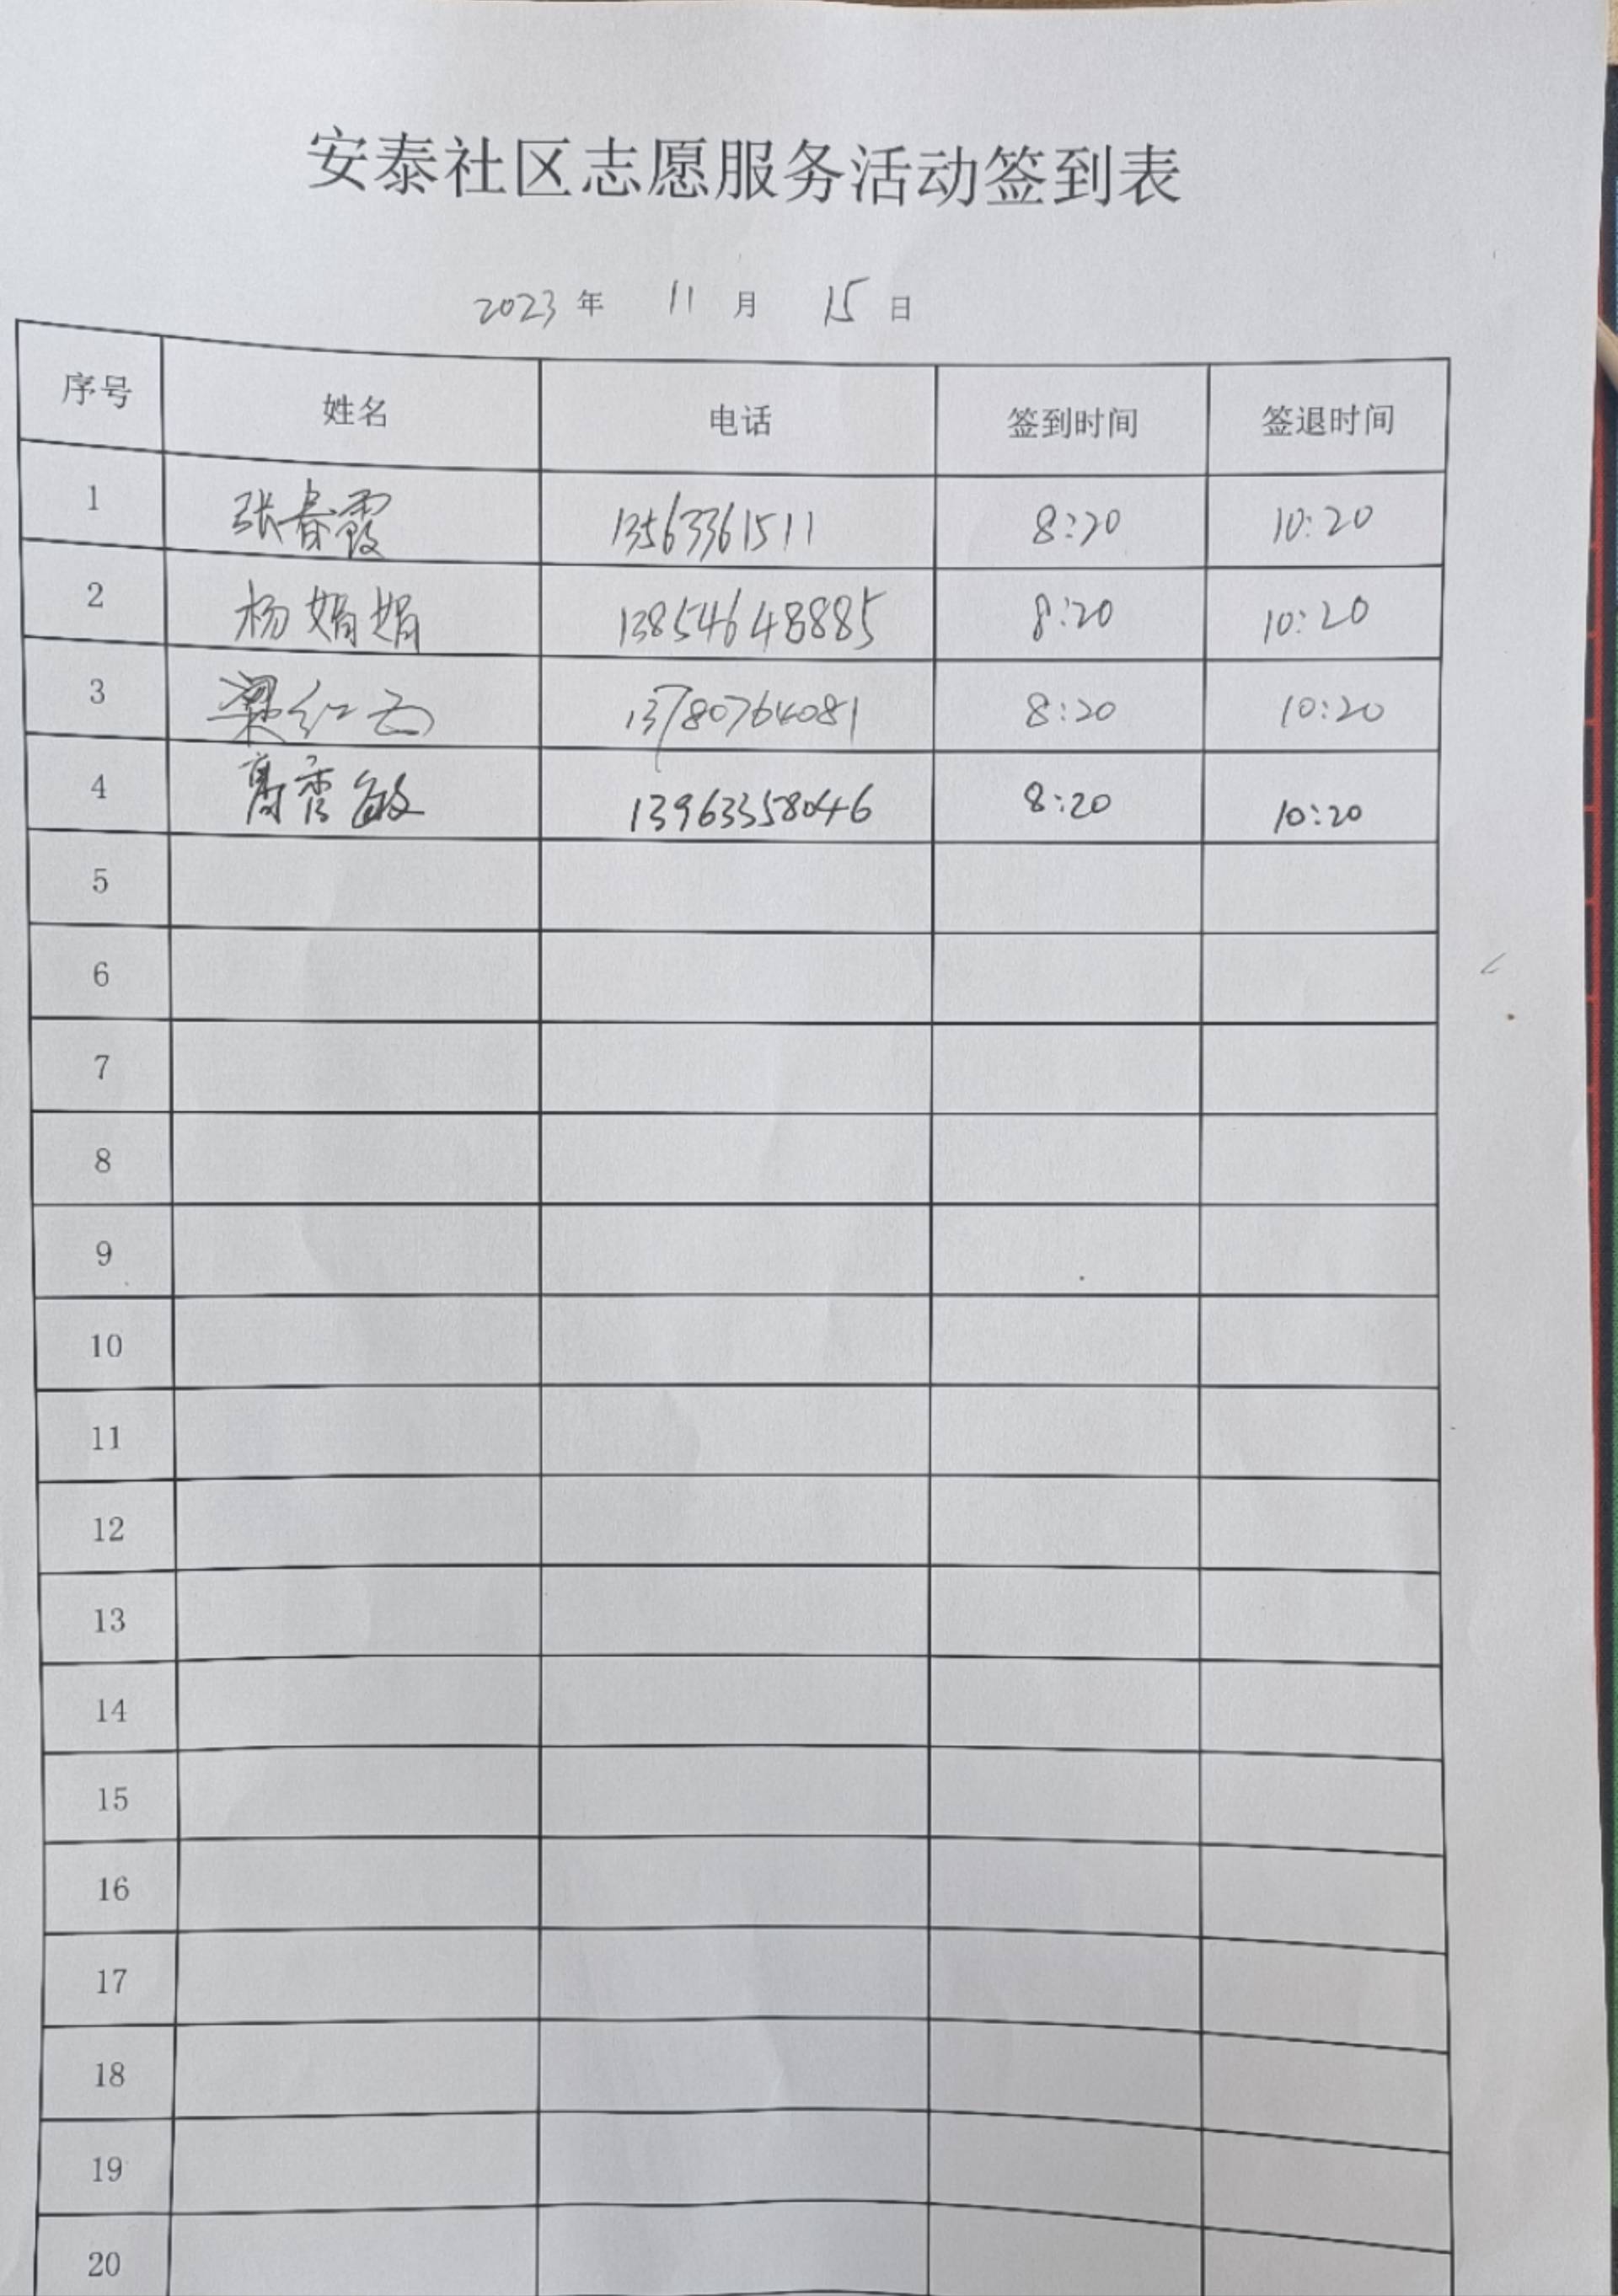 安泰社区志愿服务活动签到表
2023 年 11 月 15 日
序号 姓名 电话 签到时间 签退时间
1 张春霞 13563361511 8:20 10:20
2 杨娟娟 13854648885 8:20 10:20
3 梁红云 13780764081 8:20 10:20
4 高秀敏 13963358046 8:20 10:20
5
6
7
8
9
10
11
12
13
14
15
16
17
18
19
20